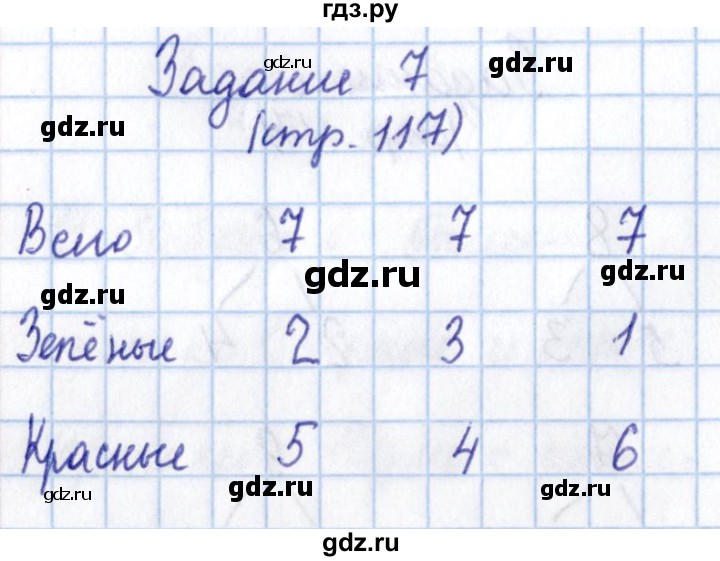 гдз.ру
Задание 7
gdz.ru
gdz.ru
gdz.ru
(стр. 117)
Всего 7 7 7
gdz.ru
gdz.ru
gdz.ru
Зелёные 2 3 1
Красные 5 4 6
gdz.ru
gdz.ru
gdz.ru
gdz.ru